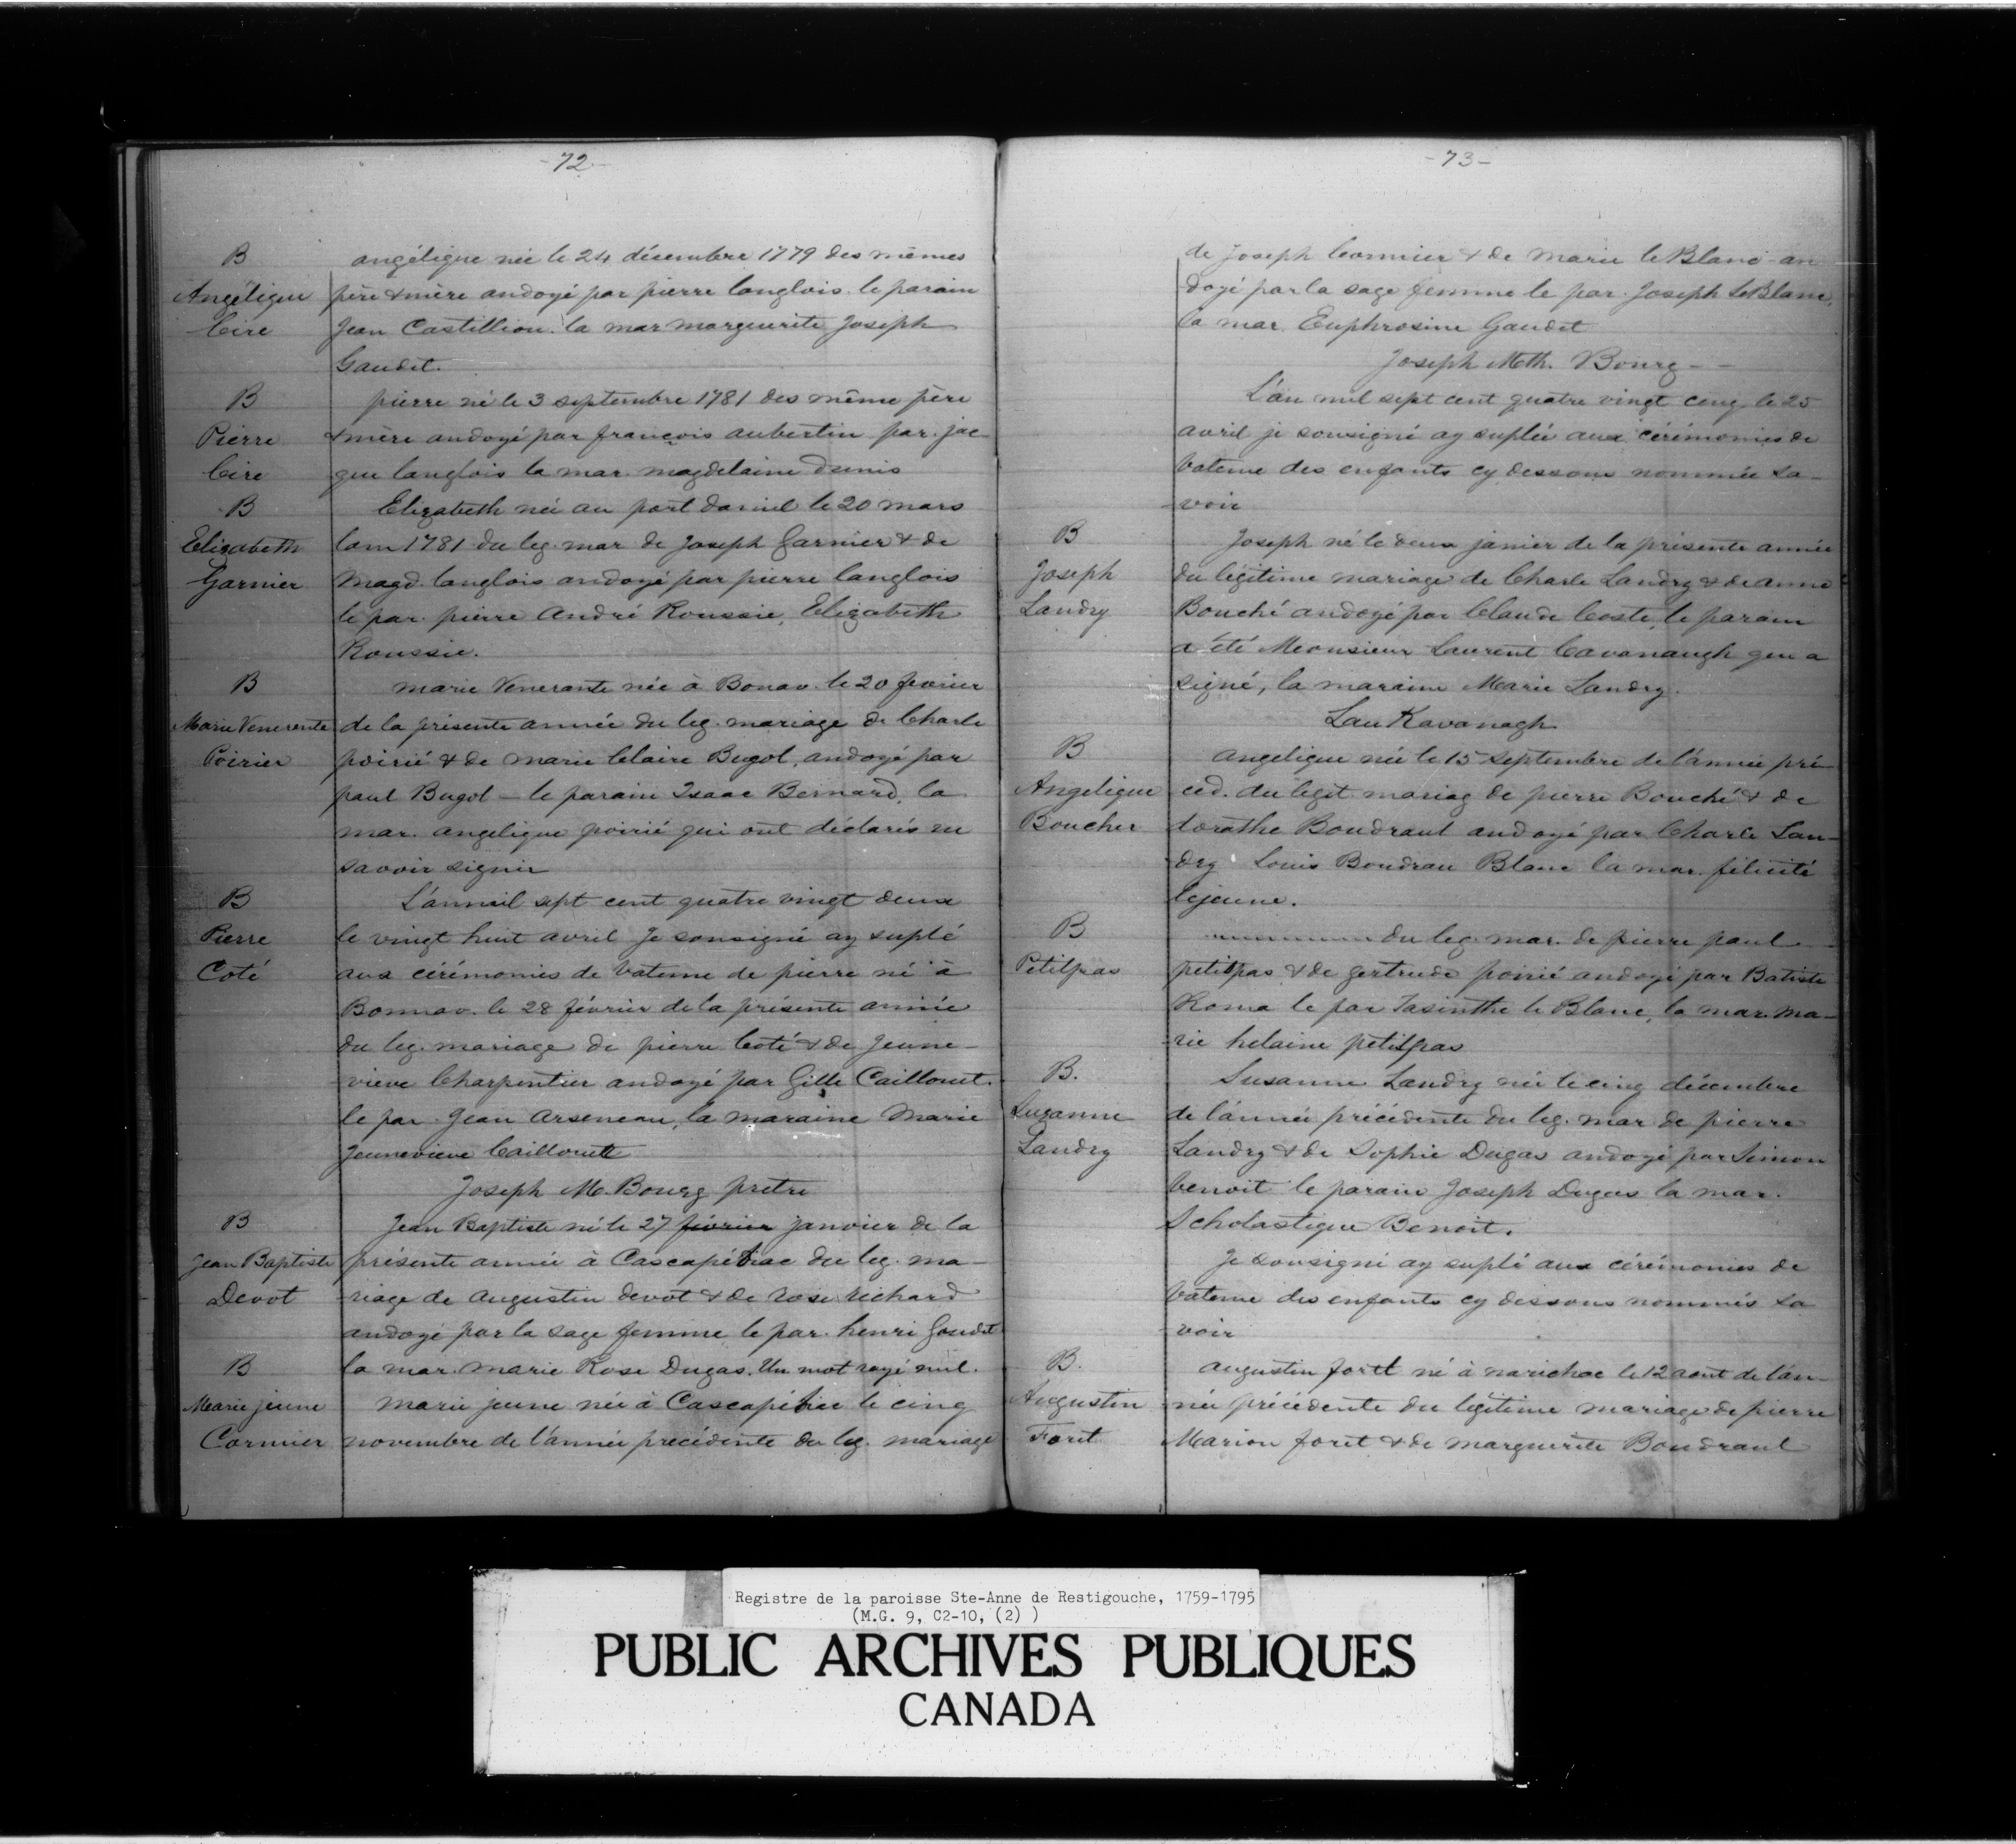 -72-
B
Angélique
Cire
angélique née le 24 désembre 1779 des mêmes
père & mère andoyé par pierre langlois. le parain
Jean Castillion. la mar marguerite Joseph
Gaudet.
B
Pierre
Cire
pierre né le 3 septembre 1781 des même père
& mère andoyé par françois aubertin par. jac-
que langlois la mar. magdelaine denis
B
Elizabeth
Garnier
Elizabeth née au port daniel le 20 mars
lann 1781 du leg. mar de Joseph Garnier & de
Magd. langlois andoyé par pierre langlois
le par. pierre André Roussie, Elizabeth
Roussie.
B
Marie Venerente
Poirier
marie Venerante née à Bonav. le 20 fevrier
de la présente année du leg. mariage de Charle
poirié & de marie Claire Bugol, andoyé par
paul Bugol - le parain Isaac Bernard, la
mar. angelique poirié qui ont déclarés ne
savoir signer
B
Pierre
Coté
L'anmil sept cent quatre vingt deux
le vingt huit avril Je sousigné ay suplé
aux cérémonies de bateme de pierre né à
Bonnav. le 28 février de la présente année
du leg. mariage de pierre Coté & de Jeune-
vieve Charpentier andoyé par Gille Caillouet.
le par. Jean Arseneau, la maraine Marie
Jeunevieve Caillouett
Joseph M. Bourg pretre
B
Jean Baptiste
Devot
Jean Baptiste né le 27 février janvier de la
présente année à Cascapébiac du leg. ma-
riage de Augustin devot & de rose richard
andoyé par la sage femme le par. henri Goudet
la mar. marie Rose Dugas. Un mot rayé nul.
B
Marie jeune
Cormier
Marie jeune née à Cascapébiec le cinq
novembre de l'année precédente du leg. mariage
-73-
de Joseph Cormier & de Marie le Blanc an
doyé par la sage femme le par. Joseph LeBlanc,
la mar. Euphrosine Gaudet
Joseph Mth. Bourg - -
L'an mil sept cent quatre vingt cinq le 25
avril je sousigné ay suplée aux cérémonies de
bateme des enfants cy dessous nommée sa-
voir
B
Joseph
Landry
Joseph né le deux janier de la présente année
du légitime mariage de Charle Landry & de anne
Bouché andoyé par Claude Coste, le parain
a été Meonsieur Laurent Cavanaugh que a
signé, la maraine Marie Landry.
Lau Kavanagh
B
Angelique
Boucher
angelique née le 15 septembre de l'année pré-
céd. du legit. mariag de pierre Bouché & de
dorathe Boudraul andoyé par Charle Lan-
dry Louis Boudrau Blanc la mar. félicité
lejeune.
B
Petitpas
du leg. mar. de pierre paul
petitpas & de gertrude poirié andoyé par Batiste
Roma le par Jasinthe le Blanc, la mar. ma-
rie helaine petitpas
B.
Suzanne
Landry
Susanne Landry née le cinq décembre
de l'année précédente du leg. mar de pierre
Landry & de Sophie Dugas andoyé par Simon
benoit le parain Joseph Dugas la mar.
Scholastique Benoit.
Je sousigné ay suplé aux cérémonies de
bateme des enfants cy dessous nommés sa
voir
B.
Augustin
Foret
augustin foret né à narichac le 12 aout de l'an-
née précédente du légitime mariage de pierre
Marion foret & de marguerite Boudraul
Registre de la paroisse Ste-Anne de Restigouche, 1759-1795
(M.G. 9, C2-10, (2) )
PUBLIC ARCHIVES PUBLIQUES
CANADA